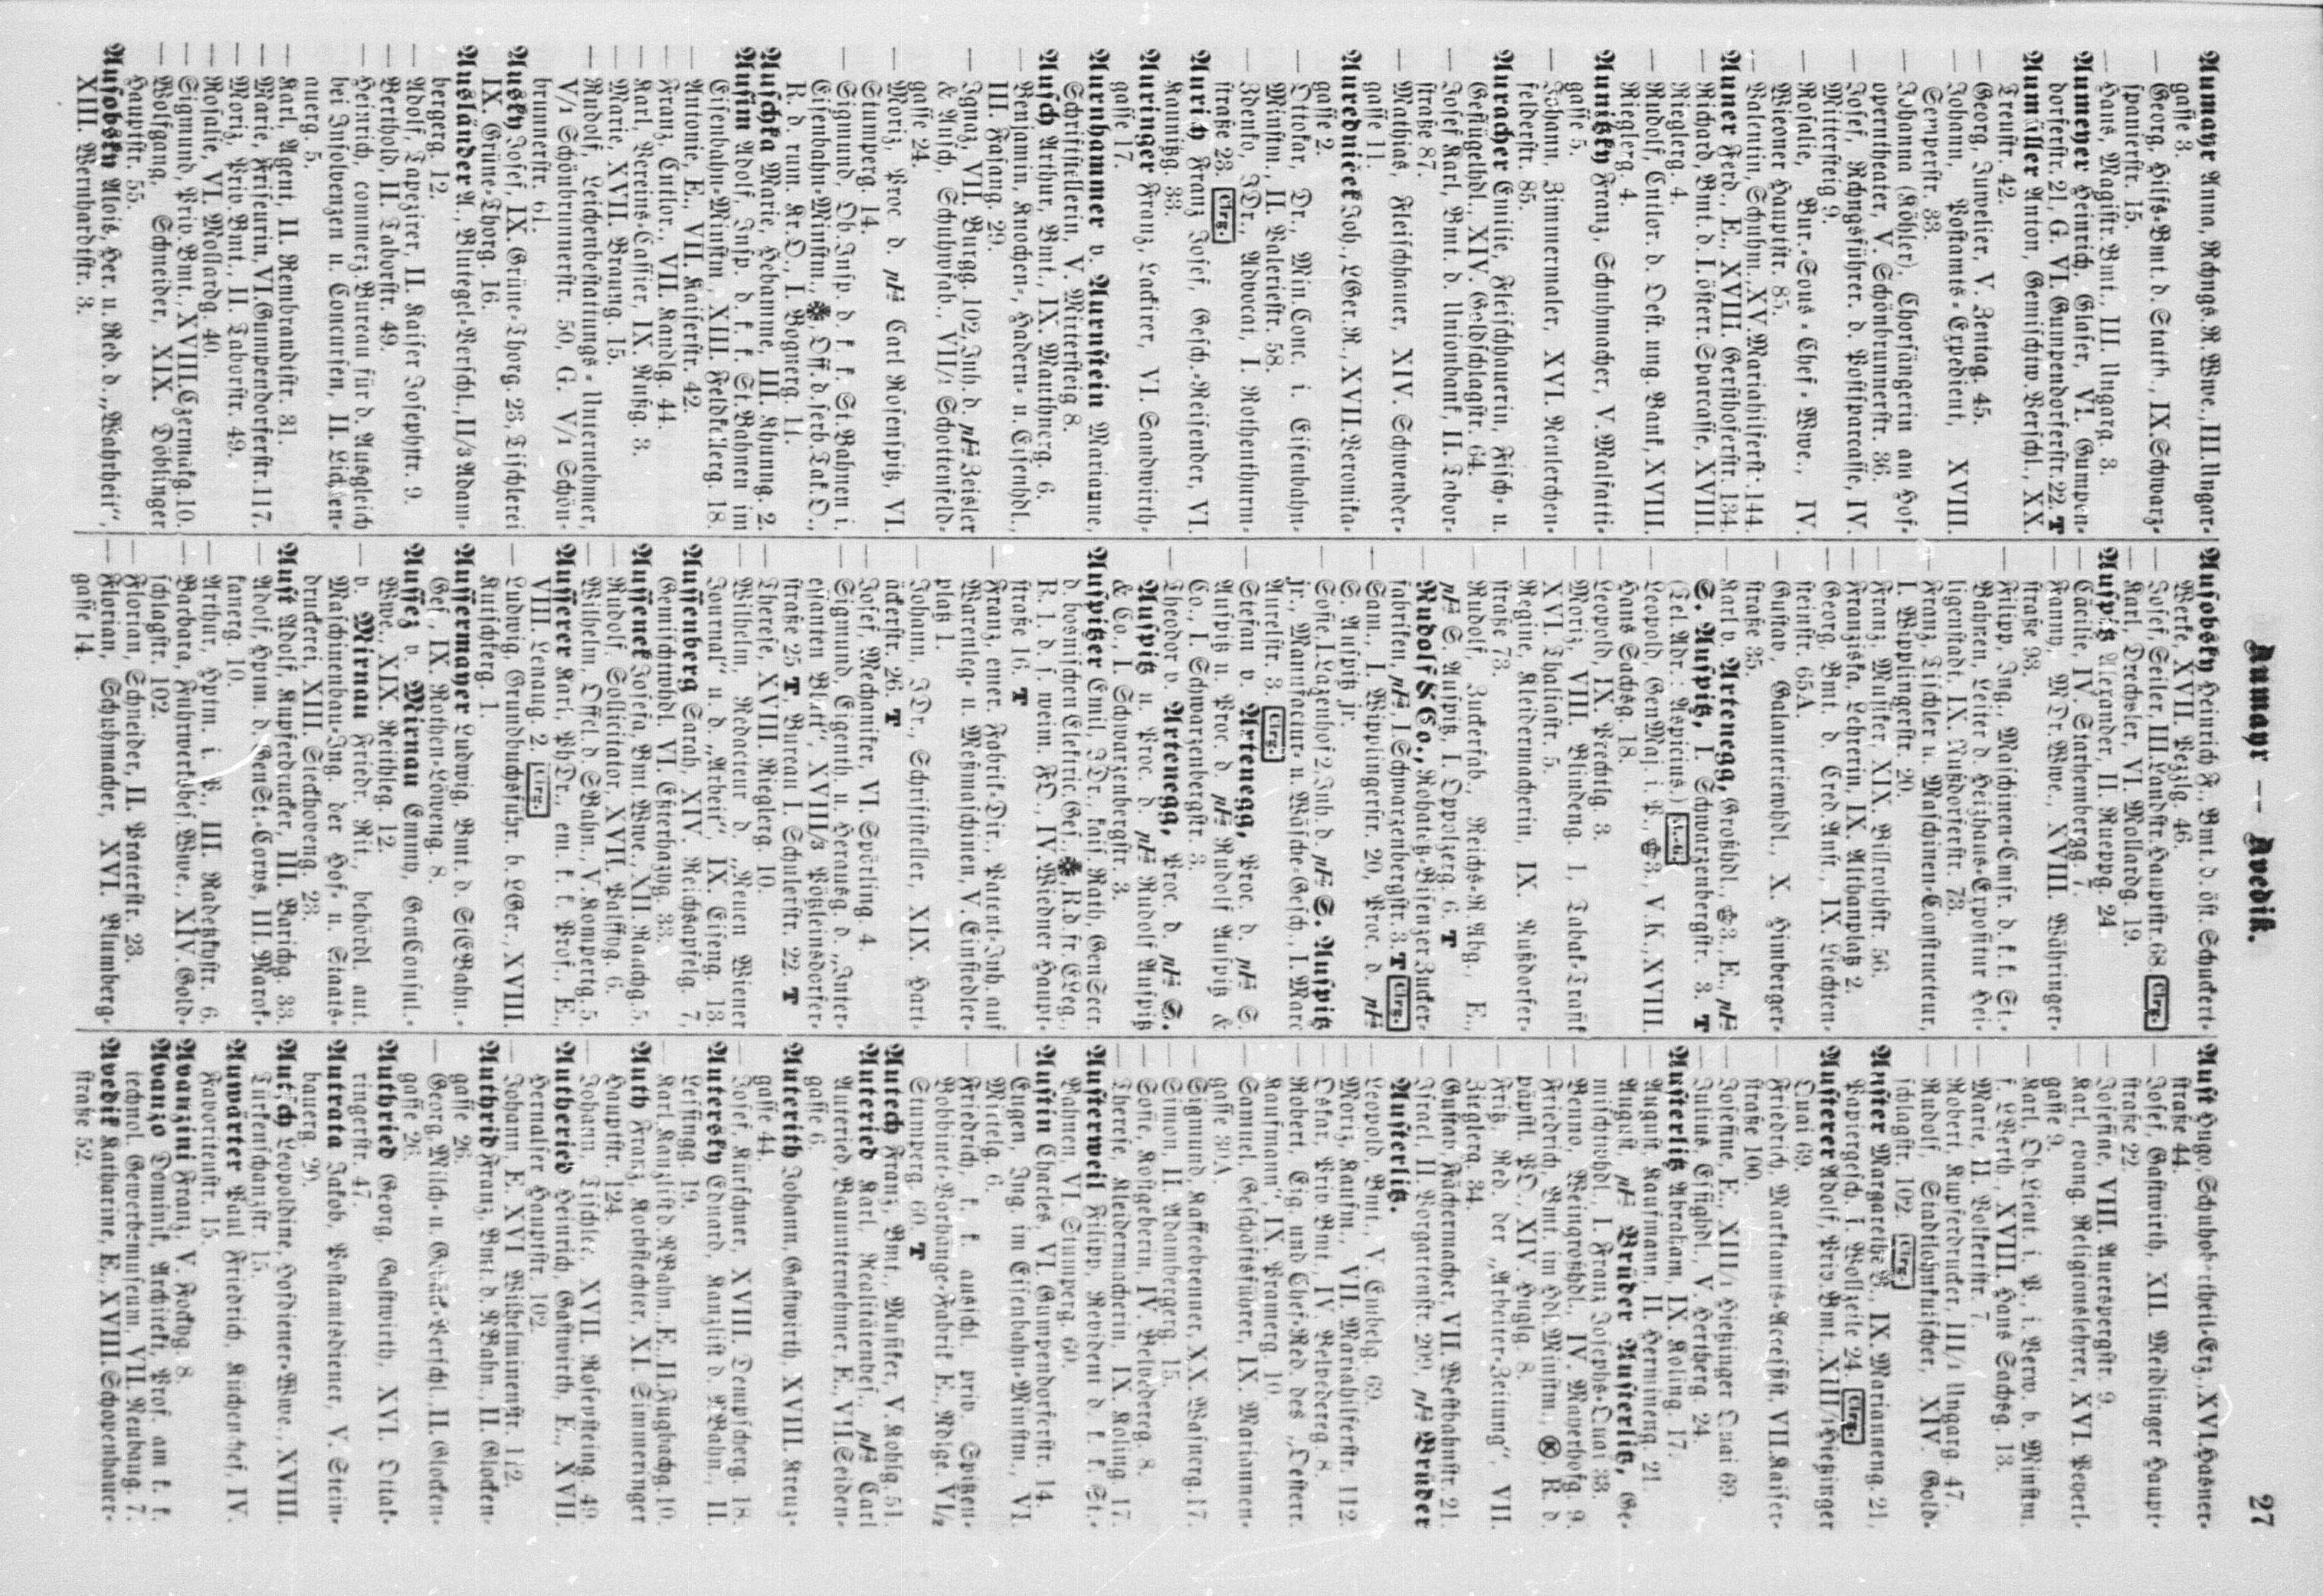 Aumayr — Avedik.
27
Aumayr Anna, Rchngs.R.Wwe., III.Ungar-
gasse 3.
— Georg, Hilfs-Bmt. d. Statth., IX.Schwarz-
spanierstr. 15.
— Hans, Magistr.Bmt., III. Ungarg. 3.
Aumeyer Heinrich, Glaser, VI. Gumpen-
dorferstr. 21, G. VI. Gumpendorferstr. 22. T
Aumüller Anton, Gemischtw.Verschl., XX.
Treustr. 42.
— Georg, Juwelier, V. Zentag. 45.
— Johann, Postamts-Expedient, XVIII.
Semperstr. 33.
— Johanna (Köhler), Chorsängerin am Hof-
operntheater, V. Schönbrunnerstr. 36.
— Josef, Rchngsführer. d. Postsparcasse, IV.
Mitersteig 9.
— Rosalie, Bur.-Sous-Chef-Wwe., IV.
Wiedner Hauptstr. 85.
— Valentin, Schuhm., XV.Mariahilferstr. 144.
Auner Ferd., E., XVIII. Gersthoferstr. 134.
— Richard, Bmt. d. I. österr. Sparcasse, XVIII.
Rieglerg. 4.
— Rudolf, Cntlor. d. Oest. ung. Bank, XVIII.
Rieglerg. 4.
Aunitzky Franz, Schuhmacher, V. Malfatti-
gasse 5.
— Johann, Zimmermaler, XVI. Neulerchen-
felderstr. 85.
Auracher Emilie, Fleischhauerin, Fisch- u.
Geflügelhdl., XIV. Goldschlagstr. 64.
— Josef Karl, Bmt. d. Unionbank, II. Tabor-
straße 87.
— Mathias, Fleischhauer, XIV. Schwender-
gasse 11.
Aurednicek Joh., LGer.R., XVII. Veronika-
gasse 2.
— Ottokar, Dr., Min.Conc. i. Eisenbahn-
Minstm., II. Valeriestr. 58.
— Zdenko, JDr., Advocat, I. Rothenthurm-
straße 23. Clrg.
Aurich Franz Josef, Gesch.-Reisender, VI.
Kaunitzg. 33.
Auringer Franz, Lackirer, VI. Sandwirth-
gasse 17.
Aurnhammer v. Aurnstein Mariane,
Schriftstellerin, V. Mittersteig 8.
Ausch Arthur, Bmt., IX. Mauthnerg. 6.
— Benjamin, Knochen-, Hadern- u. Eisenhdl.,
III. Fasang. 29.
— Ignaz, VII. Burgg. 102, Inh. d. Zeisler
& Ausch, Schuhwfab., VII/1 Schottenfeld-
gasse 24.
— Moriz, Proc. d. Carl Rosenspitz, VI.
Stumperg. 14.
— Sigmund, Ob.Insp. d. k. k. St.Bahnen i.
Eisenbahn-Minstm., Off. d. serb. Tak.O.,
R. d. rum. Kr.O., I. Bognerg. 11.
Auschka Marie, Hebamme, III. Khunng. 2.
Ausim Adolf, Insp. d. k. k. St.Bahnen im
Eisenbahn-Minstm., XIII. Feldkellerg. 18.
— Antonie, E., VII. Kaiserstr. 42.
— Franz, Cntlor., VII. Kandlg. 44.
— Karl, Vereins-Cassier, IX. Nußg. 3.
— Marie, XVII. Braung. 15.
— Rudolf, Leichenbestattungs-Unternehmer,
V/1 Schönbrunnerstr. 50, G. V/1 Schön-
brunnerstr. 61.
Ausky Josef, IX. Grüne-Thorg. 23, Tischlerei
IX. Grüne-Thorg. 16.
Ausländer A., Blutegel-Verschl., II/3 Adam-
bergerg. 12.
— Adolf, Tapezirer, II. Kaiser Josephstr. 9.
— Berthold, II. Taborstr. 49.
— Heinrich, commerz. Bureau für d. Ausgleich
bei Insolvenzen u. Concursen, II. Lichten-
auerg. 5.
— Karl, Agent, II. Rembrandtstr. 31.
— Marie, Friseurin, VI. Gumpendorferstr. 117.
— Moriz, Priv.Bmt., II. Taborstr. 49.
— Rosalie, VI. Mollardg. 40.
— Sigmund, Priv.Bmt., XVIII. Czermakg. 10.
— Wolfgang, Schneider, XIX. Döblinger
Hauptstr. 55.
Ausobsky Alois, Her. u. Red. d. „Wahrheit“,
XIII. Bernhardtstr. 3.
Ausobsky Heinrich F., Bmt. d. öst. Schuckert-
Werke, XVII. Pezzlg. 46.
— Josef, Seiler, III. Landstr. Hauptstr. 68 Clrg.
— Karl, Drechsler, VI. Mollardg. 19.
Auspitz Alexander, II. Rueppg. 24
— Caecilie, IV. Starhembergg. 7.
— Fanny, MDr. Wwe., XVIII. Währinger-
straße 93.
— Filipp, Ing., Maschinen-Cmsr. d. k. k. St.-
Bahnen, Leiter d. Heizhaus-Expositur Hei-
ligenstadt, IX. Nußdorferstr. 73.
— Franz, Tischler u. Maschinen-Constructeur,
I. Wipplingerstr. 20.
— Franz, Musiker, XIX. Billrothstr. 56.
— Franziska, Lehrerin, IX. Althanplatz 2.
— Georg, Bmt. d. Cred.Anst., IX. Liechten-
steinstr. 65A.
— Gustav, Galanteriewhdl., X. Himberger-
straße 35.
— Karl v. Artenegg, Großhdl., 3., E.,
S. Auspitz, I. Schwarzenbergstr. 3. T
(Tel.Adr.: Aspicius.)
— Leopold, GenMaj. i. P., 3., V.K., XVIII.
Hans Sachsg. 18.
— Leopold, IX. Prechtlg. 3.
— Moriz, VIII. Blindeng. 1. Tabak-Trafik
XVI. Thaliastr. 5.
— Regine, Kleidermacherin, IX. Nußdorfer-
straße 73.
— Rudolf, Zuckerfab., Reichs-R.Abg., E.,
S. Auspitz, I. Oppolzerg. 6. T
— Rudolf & Co., Rohatetz-Bisenzer Zucker-
fabriken, I. Schwarzenbergstr. 3. T Clrg.
— Sam., I. Wipplingerstr. 20, Proc. d.
S. Auspitz jr.
— Sofie, I. Lazenhof 2, Inh. d. S. Auspitz
jr., Manufactur- u. Wäsche-Gesch., I. Marc
Aurelstr. 3. Clrg.
— Stefan v. Artenegg, Proc. d. S.
Auspitz u. Proc. d. Rudolf Auspitz &
Co., I. Schwarzenbergstr. 3.
— Theodor v. Artenegg, Proc. d. S.
Auspitz u. Proc. d. Rudolf Auspitz
& Co., I. Schwarzenbergstr. 3.
Auspitzer Emil, JDr., kais. Rath, GenSecr.
d. bosnischen Elektric.Ges., R. d. fr. ELeg.,
R. 1. d. s. weim. FO., IV. Wiedner Haupt-
straße 16. T
— Franz, emer. Fabrik-Dir., Patent-Inh. auf
Warenleg- u. Meßmaschinen, V. Einsiedler-
platz 1.
— Johann, JDr., Schriftsteller, XIX. Hart-
äckerstr. 26. T
— Josef, Mechaniker, VI. Spörling. 4.
— Sigmund, Eigenth. u. Herausg. d. „Inter-
essanten Blatt“, XVIII/3 Pötzleinsdorfer-
straße 25 T, Bureau I. Schulerstr. 22. T
— Therese, XVIII. Rieglerg. 10.
— Wilhelm, Redacteur d. „Neuen Wiener
Journal“ u. d. „Arbeit“, IX. Eiseng. 13.
Aussenberg Sarah, XIV. Reichsapfelg. 7,
Gemischtwhdl. VI. Esterhazyg. 33.
Aussenek Josefa, Bmt.Wwe., XII. Raachg. 5.
— Rudolf, Sollicitator, XVII. Palffyg. 6.
— Wilhelm, Offcl. d. SBahn., V. Kompertg. 5.
Ausserer Karl, PhDr., em. k. k. Prof., E.,
VIII. Lenaug. 2. Clrg.
— Ludwig, Grundbuchsführ. b. LGer., XVIII.
Kutschkerg. 1.
Aussermayer Ludwig, Bmt. d. StEBahn.-
Ges., IX. Rothen-Löweng. 8.
Aussez v. Mirnau Emmy, GenConsul.-
Wwe., XIX. Reithleg. 12.
— v. Mirnau Friedr. Rit., behördl. aut.
Maschinenbau-Ing. der Hof- u. Staats-
druckerei, XIII. Steckhoveng. 23.
Aust Adolf, Kupferdrucker, III. Barichg. 33.
— Adolf, Hptm. d. GenSt.-Corps, III. Marok-
kanerg. 10.
— Arthur, Hptm. i. P., III. Radetzkystr. 6.
— Barbara, Fuhrwerksbes.Wwe., XIV. Gold-
schlagstr. 102.
— Florian, Schneider, II. Praterstr. 23.
— Florian, Schuhmacher, XVI. Blumberg-
gasse 14.
Aust Hugo, Schuhobertheil-Erz., XVI. Hasner-
straße 44.
— Josef, Gastwirth, XII. Meidlinger Haupt-
straße 22.
— Josefine, VIII. Auerspergstr. 9.
— Karl, evang. Religionslehrer, XVI. Peyerl-
gasse 9.
— Karl, Ob.Lieut. i. P., i. Verw. b. Minstm.
f. LVerth., XVIII. Hans Sachsg. 13.
— Marie, II. Volkertstr. 7.
— Robert, Kupferdrucker, III/1 Ungarg. 47.
— Rudolf, Stadtlohnkutscher, XIV. Gold-
schlagstr. 102. Clrg.
Auster Margarethe B., IX. Marianneng. 21,
Papiergesch. I. Wollzeile 24. Clrg.
Austerer Adolf, Priv.Bmt., XIII/1 Hietzinger
Quai 69.
— Friedrich, Marktamts-Accessist, VII. Kaiser-
straße 100.
— Josefine, E., XIII/1 Hietzinger Quai 69.
— Julius, Essighdl., V. Hertherg. 24.
Austerlitz Abraham, IX. Roling. 17.
— August, Kaufmann, II. Hermineng. 21.
— August, Brüder Austerlitz, Ge-
mischtwhdl., I. Franz Josephs-Quai 33.
— Benno, Weingroßhdl., IV. Mayerhofg. 9.
— Friedrich, Bmt. im Hdl.Minstm., R. d.
päpstl. PO., XIV. Huglg. 8.
— Fritz, Red. der „Arbeiter-Zeitung“, VII.
Zieglerg. 34.
— Gustav, Fächermacher, VII. Westbahnstr. 21.
— Israel, II. Vorgartenstr. 209, Brüder
Austerlitz.
— Leopold, Bmt., V. Embelg. 63.
— Moriz, Kaufm., VII. Mariahilferstr. 112.
— Oskar, Priv.Bmt., IV. Belvedereg. 8.
— Robert, Eig. und Chef-Red. des „Oesterr.
Kaufmann“, IX. Pramerg. 10.
— Samuel, Geschäftsführer, IX. Mariannen-
gasse 30A
— Sigmund, Kaffeebrenner, XX. Wasnerg. 17.
— Simon, II. Adambergerg. 15.
— Sofie, Kostgeberin, IV. Belvedereg. 8.
— Therese, Kleidermacherin, IX. Roling. 17.
Austerweil Filipp, Revident d. k. k. St.-
Bahnen, VI. Stumperg. 60.
Austin Charles, VI. Gumpendorferstr. 14.
— Eugen, Ing. im Eisenbahn-Minstm., VI.
Mittelg. 6.
— Friedrich, k. k. ausschl. priv. Spitzen-
Bobbinet-Vorhänge-Fabrik E., Ndlge. VI/2
Stumperg. 60. T
Autech Franz, Bmt., Musiker, V. Kohlg. 51.
Auteried Karl, Realitätenbes., Carl
Auteried, Bauunternehmer, E., VI. Seiden-
gasse 6.
Auterith Johann, Gastwirth, XVIII. Kreuz-
gasse 44.
— Josef, Kürschner, XVIII. Dempscherg. 18.
Autersky Eduard, Kanzlist d. NBahn., II.
Lessingg. 19.
— Karl, Kanzlist d. NBahn., E., II. Hugbachg. 10.
Auth Franz, Korbflechter, XI. Simmeringer
Hauptstr. 124.
— Johann, Tischler, XVII. Rosensteing. 49.
Autheried Heinrich, Gastwirth, E., XVII.
Hernalser Hauptstr. 102.
— Johann, E. XVI Wilhelminenstr. 112.
Authrid Franz, Bmt. d. NBahn., II. Glocken-
gasse 26.
— Georg, Milch- u. Gebäck-Verschl., II. Glocken-
gasse 26.
Authried Georg, Gastwirth, XVI. Ottak-
ringerstr. 47.
Autrata Jakob, Postamtsdiener, V. Stein-
bauerg. 20.
Leopoldine, Hofdiener-Wwe., XVIII.
Türkenschanzstr. 15.
Auwärter Paul Friedrich, Küchenchef, IV.
Favoritenstr. 15.
Avanzini Franz, V. Fockyg. 8.
Avanzo Dominik, Architekt, Prof. am k. k.
technol. Gewerbemuseum, VII. Neubaug. 7.
Avedik Katharine, E., XVIII. Schopenhauer-
straße 52.